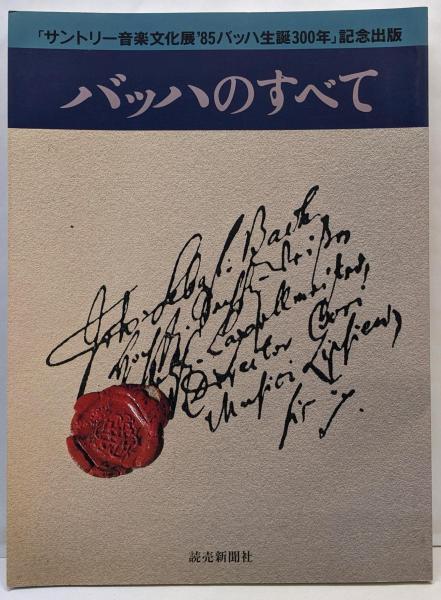 「サントリー音楽文化展'85バッハ生誕300年」記念出版
バッハのすべて
Joh: Sebast: Bach
Capellmeister,
Director Chori
Musici
読売新聞社